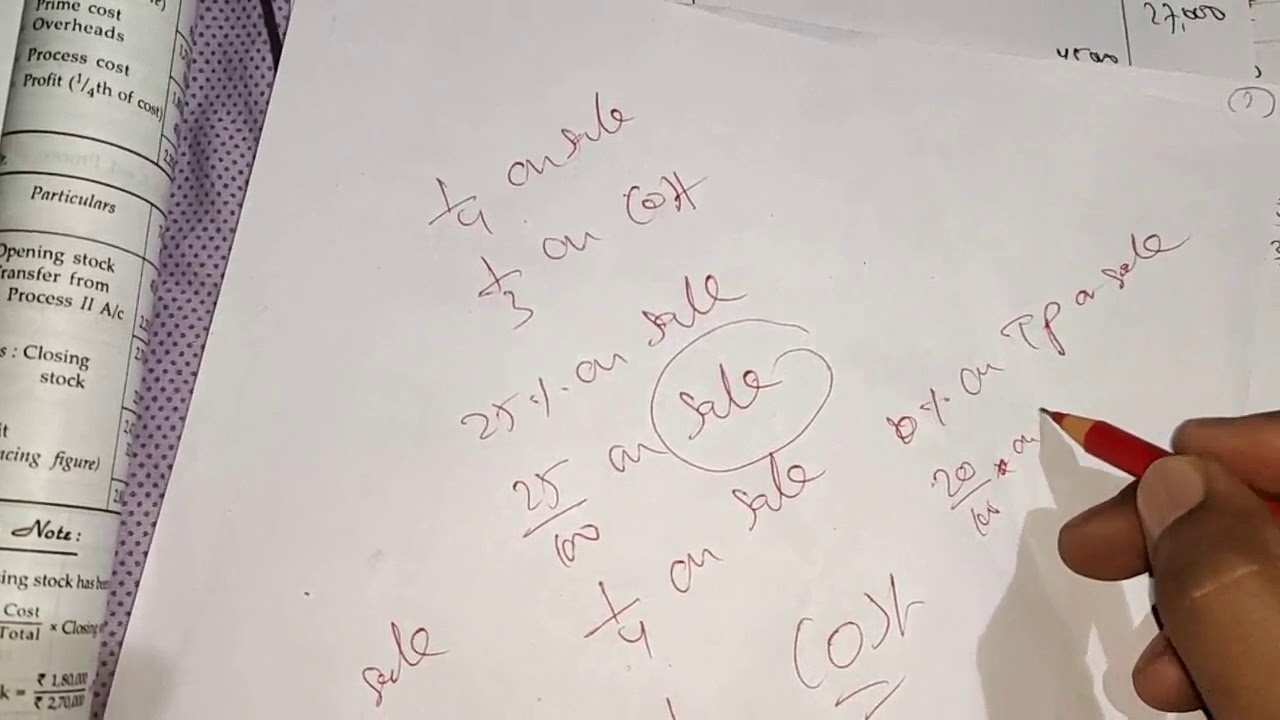 Prime cost
Overheads
Process cost
Profit (1/4th of cost)
Particulars
Opening stock
Transfer from
Process II A/c
s : Closing
stock
it
ncing figure)
Note :
ing stock has been
Cost
Total × Closing
k = ₹ 1,80,000
₹ 2,70,000
27,000
1/4 on sale
1/3 on cost
25 % on sale
25/100 on sale
1/4 on sale
sale
cost
% on TP or sale
20/100 on